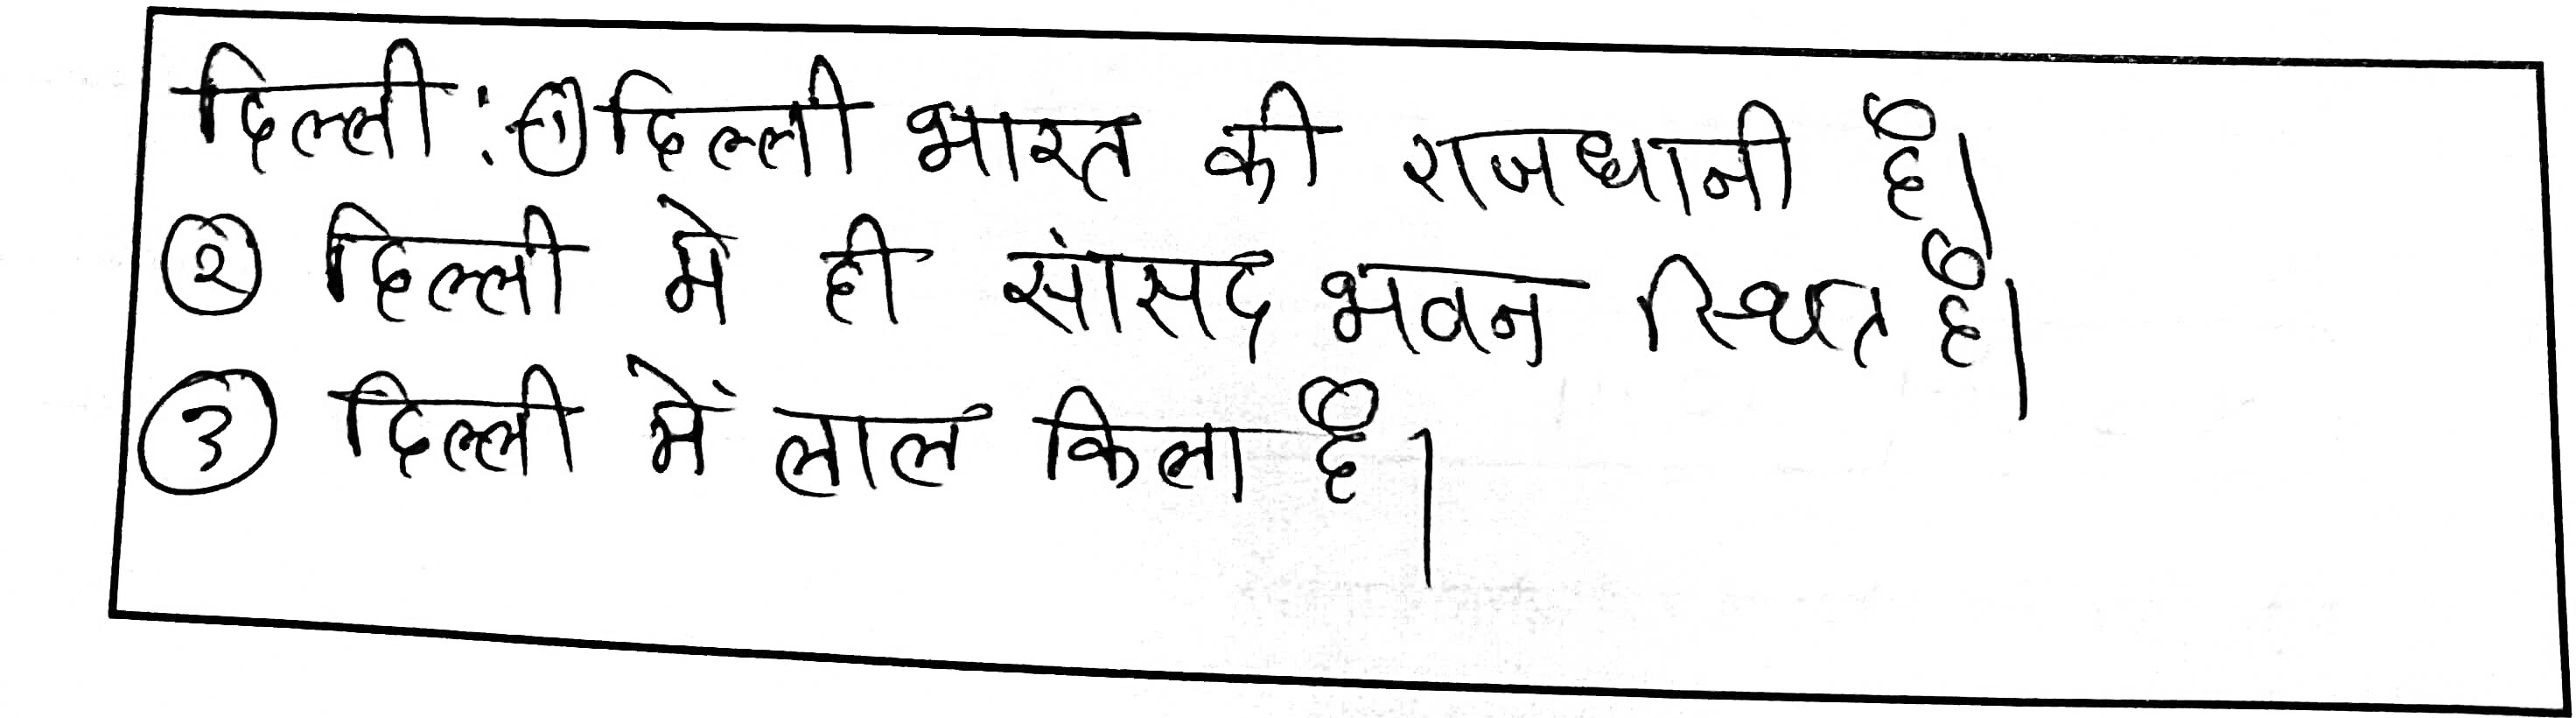 दिल्ली : ① दिल्ली भारत की राजधानी है।
② दिल्ली मे ही सांसद भवन स्थित है।
③ दिल्ली में लाल किला है।